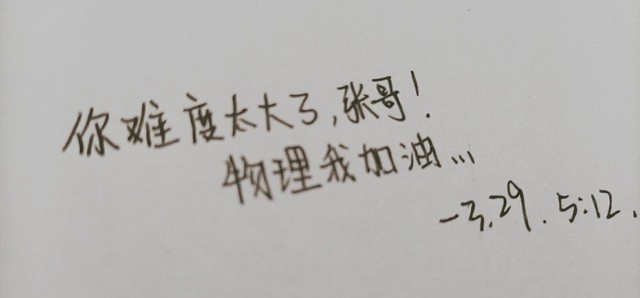 你难度太大了,张哥!
物理我加油...
-3.29. 5:12.